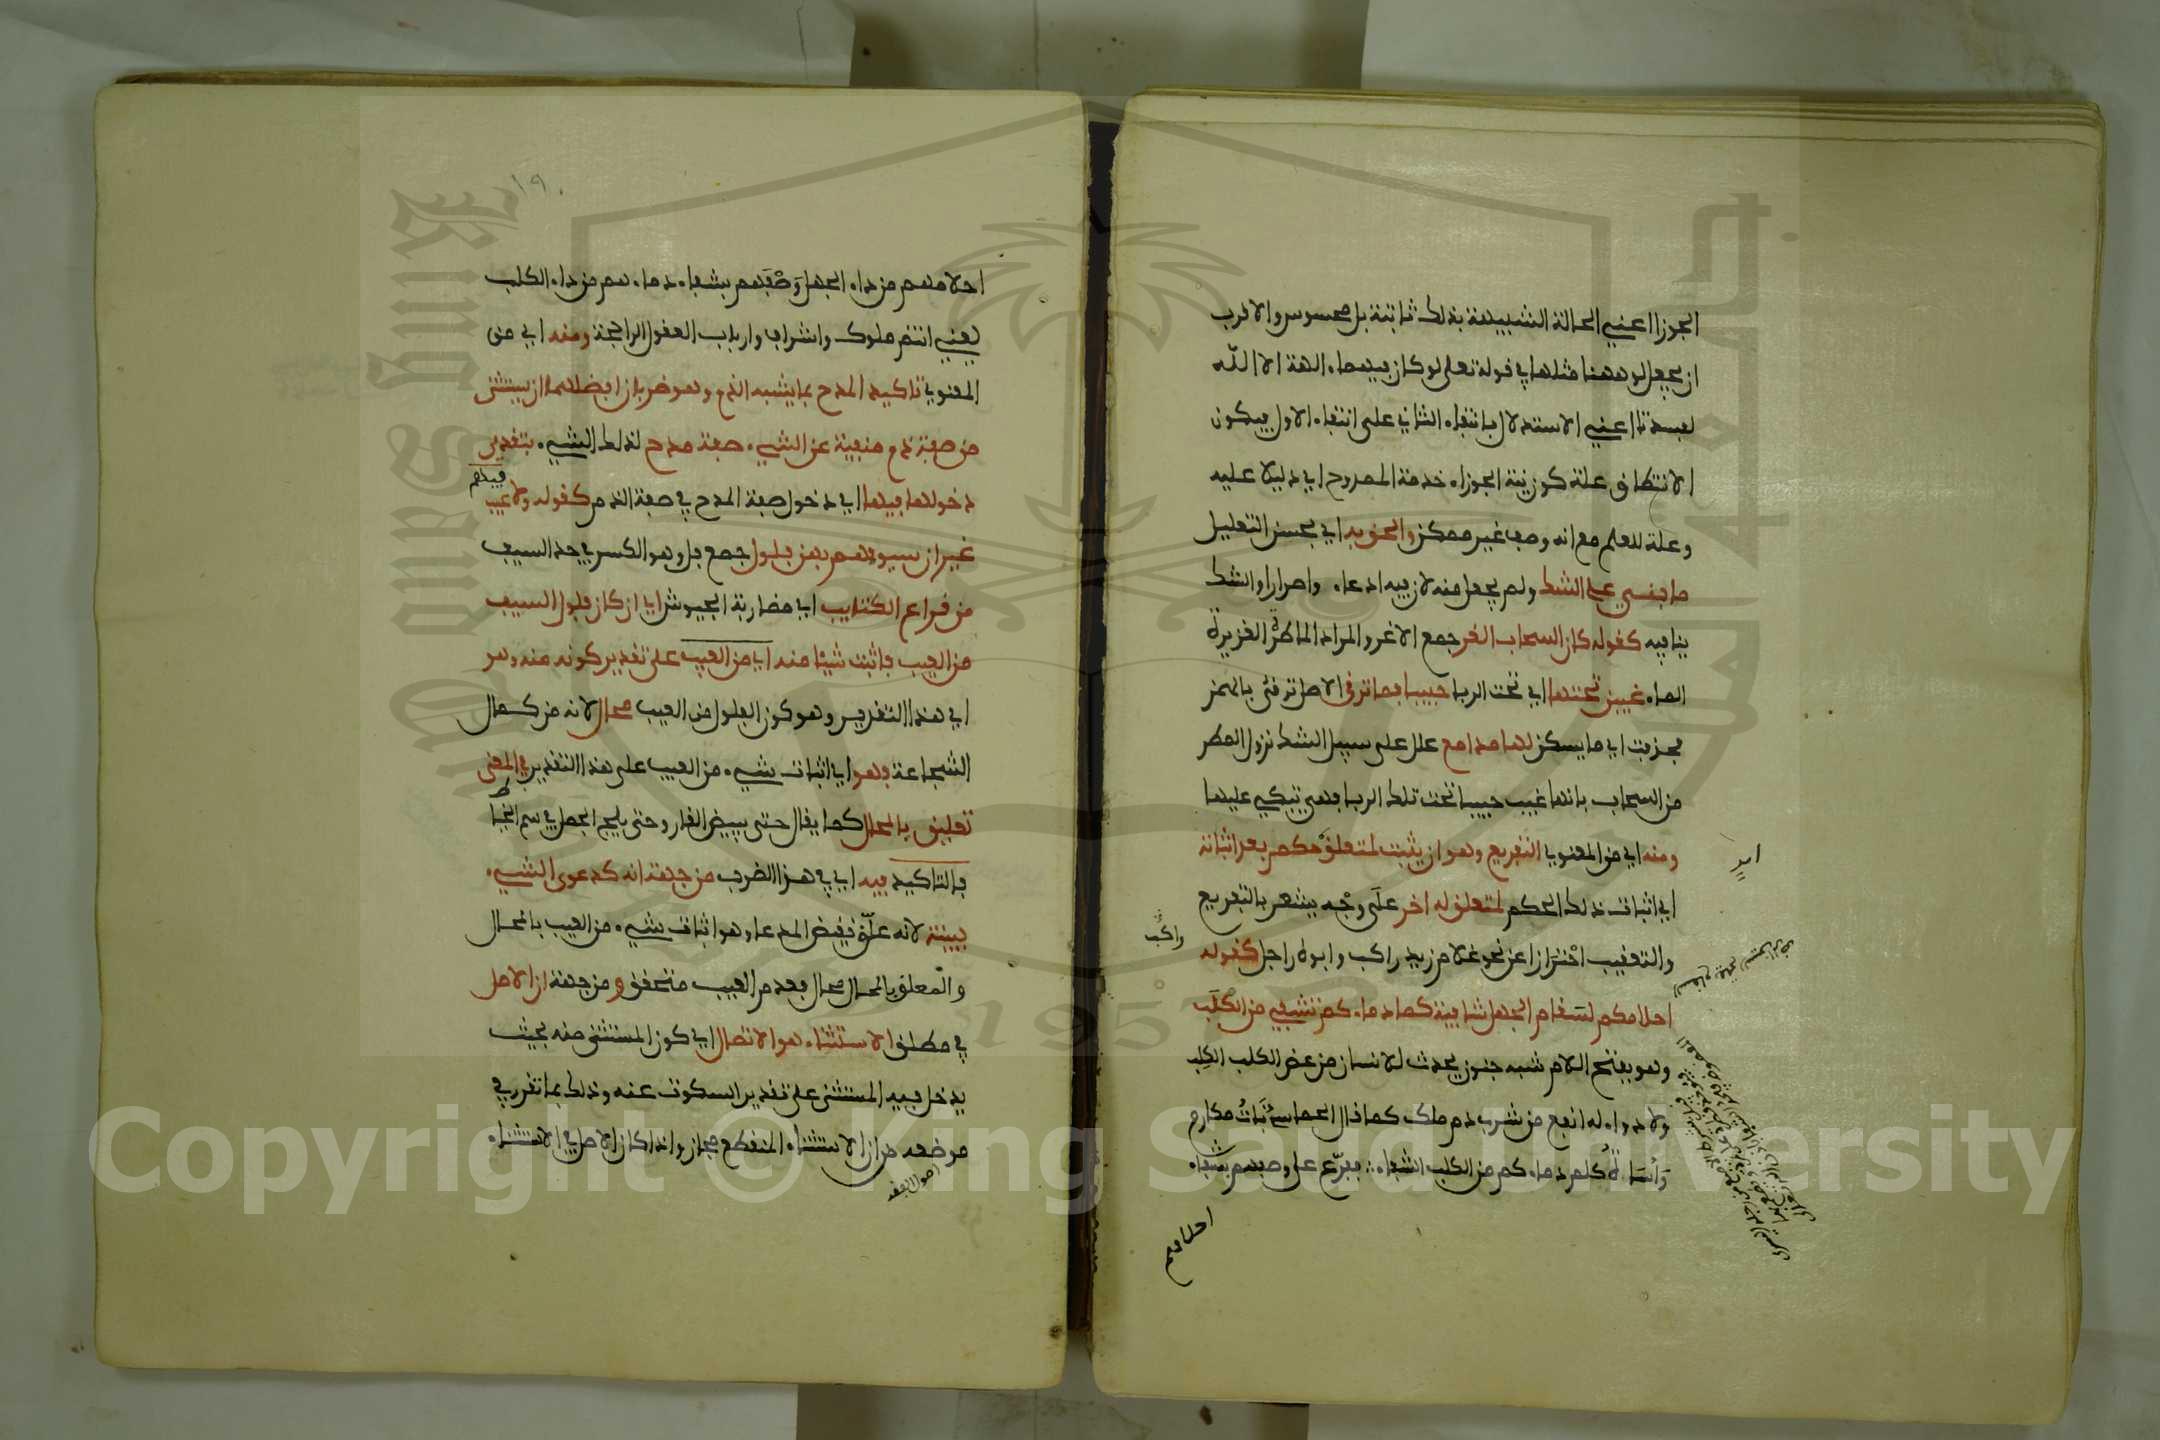 الجوزا اعني الحالة الشبيهة بذلك ثابتة بل محسوس والاقرب
ان يجعل لو ههنا مثلها في قوله تعلى لو كان فيهما ءالهة الا الله
لفسدتا اعني الاستدلال بانتفاء الثاني على انتفاء الاول فيكون
الانتطاق علة كون نية الجوزاء خدمة الممدوح اي دليلا عليه
وعلة للعلم مع انه وصف غير ممكن والحق به اي بحسن التعليل
ما بني على الشك ولم يجعل منه لان فيه ادعاء واصرارا والشك
ينافيه كقوله كان السحاب الغر جمع الاغر والمراد الماطرة الغزيرة
الماء غيبن تحتها اي تحت الربا حبيبا فما ترقى الاصل ترقئ بالهمز
فخففت اي ما يسكن لها مدامع علل على سبيل الشك نزول المطر
من السحاب بانها غيبت حبيبا تحت تلك الربا فهي تبكي عليها
ومنه اي من المعنوي التفريع وهو ان يثبت لمتعلق حكم بعد اثباته
اي اثبات ذلك الحكم لمتعلق له اخر على وجه يشعر بالتفريع
والتعقيب احترازا عن نحو غلام زيد راكب وابوه راجل كقوله
احلامكم لسقام الجهل شافية كما دماءكم تشفي من الكلب
وهو بفتح اللام شبه جنون يحدث للانسان من عض الكلب الكلب
ولا دواء له انفع من شرب دم ملك كما قال الحماسي بناة مكارم
وأساة كلم دماءكم من الكلب الشفاء ففرع على وصفهم بشفاء
احلامهم
وراكب
١٩٠
احلامهم من داء الجهل وصفهم بشفاء دماءهم من داء الكلب
يعني انتم ملوك واشراف وارباب العقول الراجحة ومنه اي من
المعنوي تاكيد المدح بما يشبه الذم وهو ضربان افضلهما ان يستثنى
من صفة ذم منفية عن الشيء صفة مدح لذلك الشيء بتقدير
دخولها فيها اي دخول صفة المدح في صفة الذم كقوله ولا عيب
فيهم
غير ان سيوفهم بهن فلول جمع فل وهو الكسر في حد السيف
من قراع الكتايب اي مضاربة الجيوش اي ان كان فلول السيف
من العيب فاثبت شيئا منه اي من العيب على تقدير كونه منه وهو
اي هذا التقدير وهو كون الفلول من العيب محال لانه من كمال
الشجاعة فهو اي اثبات شيء من العيب على هذا التقدير في المعنى
تعليق بالمحال كما يقال حتى يبيض القار وحتى يلج الجمل في سم الخياط
فالتاكيد فيه اي في هذا الضرب من جهة انه كدعوى الشيء
ببينة لانه علق نقيض المدعا وهو اثبات شيء من العيب بالمحال
والمعلق بالمحال محال فعدم العيب متحقق ومن جهة ان الاصل
في مطلق الاستثناء هو الاتصال اي كون المستثنى منه بحيث
يدخل فيه المستثنى على تقدير السكوت عنه وذلك بما تقرر في
موضعه من ان الاستثناء المنقطع مجاز واذا كان الاصل في الاستثناء
اصول الفقه